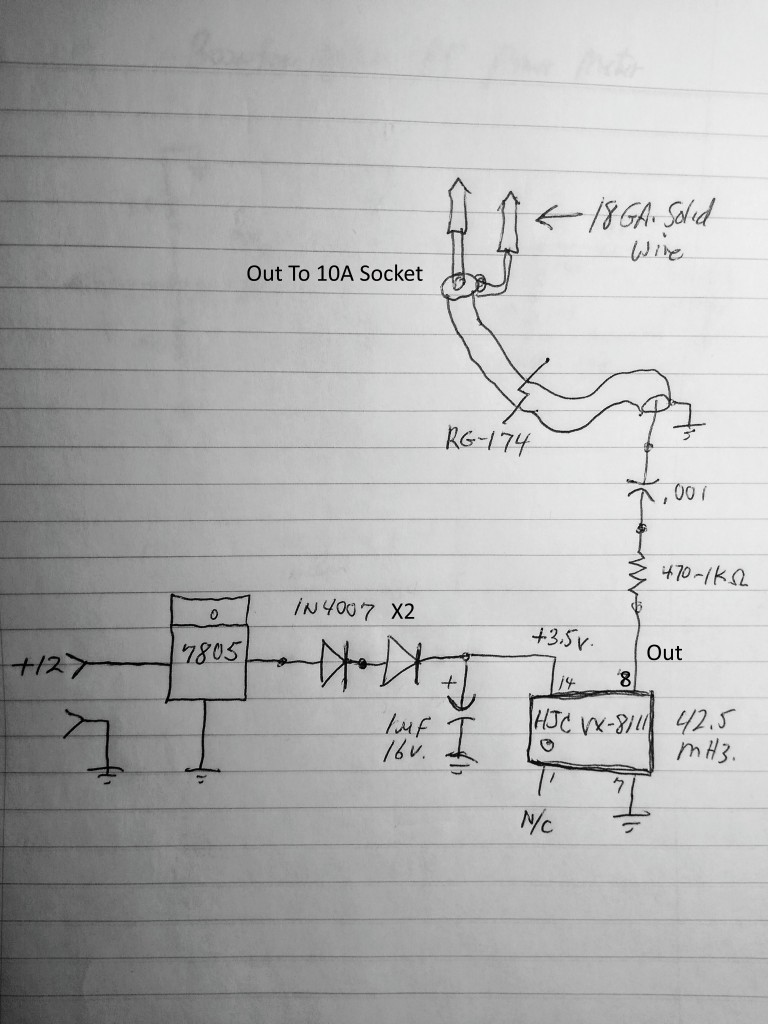 Power Meter
18 GA. Solid
Wire
Out To 10A Socket
RG-174
.001
470-1KΩ
1N4007 X2
0
7805
+12
+3.5v.
Out
14
8
+
1µF
16v.
HJC VX-8111
42.5
mHz.
1
7
N/C